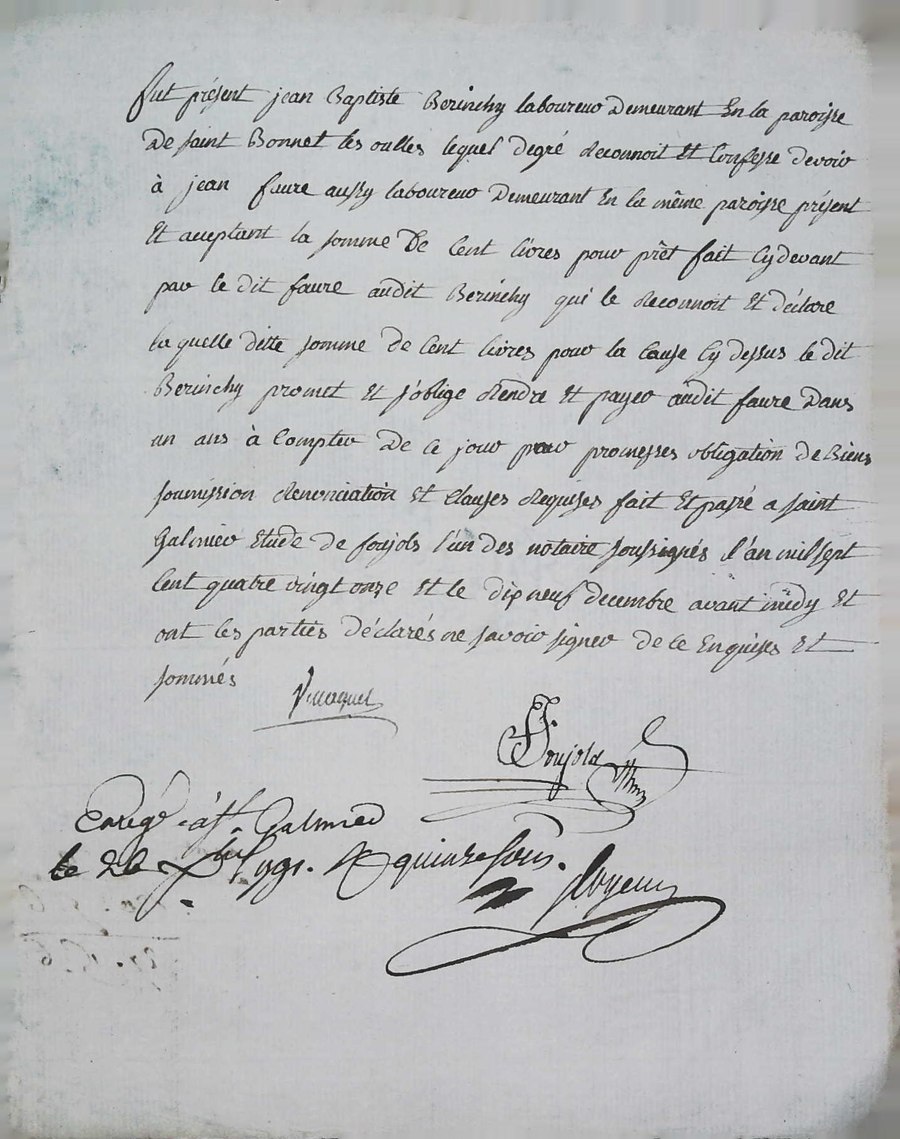 fut présent jean Baptiste Berinchy laboureur Demeurant En la paroisse
De saint Bonnet les oulles lequel degré Reconnoit Et Confesse devoir
à jean faure aussy laboureur Demeurant En la même paroisse présent
Et acceptant la somme De Cent livres pour prêt fait Cy devant
par le dit faure audit Berinchy qui le Reconnoit Et déclare
la quelle ditte somme de Cent livres pour la Cause Cy dessus le dit
Berinchy promet Et s'oblige Rendre Et payer audit faure Dans
un ans à Compter De ce jour pour promesses obligation de Biens
soumission Renonciation Et Clauses Requises fait Et passé a saint
Galmier Etude de foujols l'un des notaire soussignés l'an mil sept
Cent quatre vingt onze Et le dix neuf decembre avant midy Et
ont les parties déclarés ne savoir signer de ce Enquises Et
sommés
foujols
Enregé à St. Galmier
le 26 1791. quinze sous.